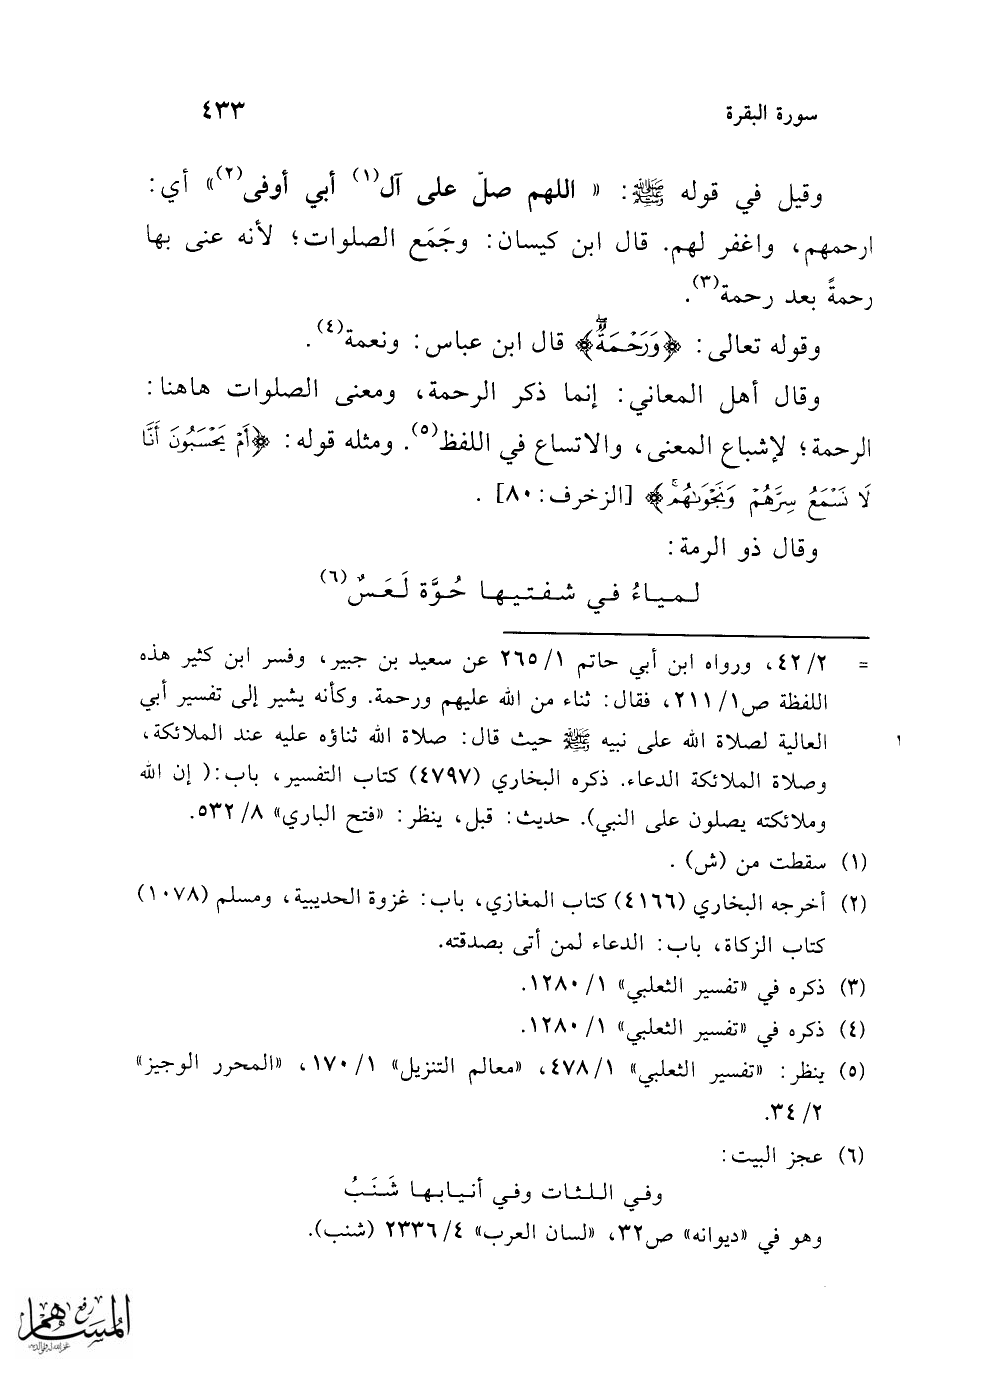 سورة البقرة ٤٣٣
وقيل في قوله ﷺ: « اللهم صلّ على آل(١) أبي أوفى(٢)» أي:
ارحمهم، واغفر لهم. قال ابن كيسان: وجَمَع الصلوات؛ لأنه عنى بها
رحمةً بعد رحمة(٣).
وقوله تعالى: ﴿وَرَحْمَةٌ﴾ قال ابن عباس: ونعمة(٤).
وقال أهل المعاني: إنما ذكر الرحمة، ومعنى الصلوات هاهنا:
الرحمة؛ لإشباع المعنى، والاتساع في اللفظ(٥). ومثله قوله: ﴿أَمْ يَحْسَبُونَ أَنَّا
لَا نَسْمَعُ سِرَّهُمْ وَنَجْوَىٰهُم﴾ [الزخرف: ٨٠] .
وقال ذو الرمة:
لـمـيـاءُ فـي شـفـتـيـهـا حُـوَّة لَـعَـسٌ(٦)
= ٤٢/٢، ورواه ابن أبي حاتم ٢٦٥/١ عن سعيد بن جبير، وفسر ابن كثير هذه
اللفظة ص٢١١/١، فقال: ثناء من الله عليهم ورحمة. وكأنه يشير إلى تفسير أبي
العالية لصلاة الله على نبيه ﷺ حيث قال: صلاة الله ثناؤه عليه عند الملائكة،
وصلاة الملائكة الدعاء. ذكره البخاري (٤٧٩٧) كتاب التفسير، باب:( إن الله
وملائكته يصلون على النبي). حديث: قبل، ينظر: «فتح الباري» ٥٣٢/٨.
(١) سقطت من (ش) .
(٢) أخرجه البخاري (٤١٦٦) كتاب المغازي، باب: غزوة الحديبية، ومسلم (١٠٧٨)
كتاب الزكاة، باب: الدعاء لمن أتى بصدقته.
(٣) ذكره في «تفسير الثعلبي» ١٢٨٠/١.
(٤) ذكره في «تفسير الثعلبي» ١٢٨٠/١.
(٥) ينظر: «تفسير الثعلبي» ٤٧٨/١، «معالم التنزيل» ١٧٠/١، «المحرر الوجيز»
٣٤/٢.
(٦) عجز البيت:
وفـي الـلـثـات وفـي أنـيـابـهـا شَـنَـبُ
وهو في «ديوانه» ص٣٢، «لسان العرب» ٢٣٣٦/٤ (شنب).
رفع
المساهم